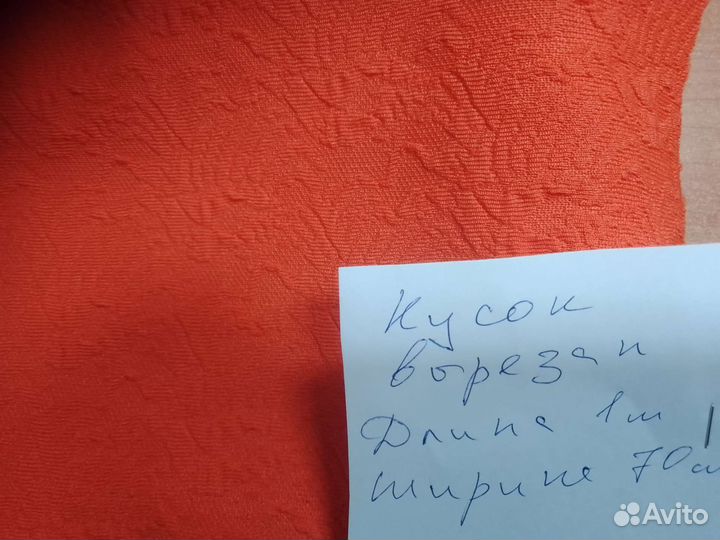 Кусок
вырезан
Длина 1м
ширина 70см
Avito